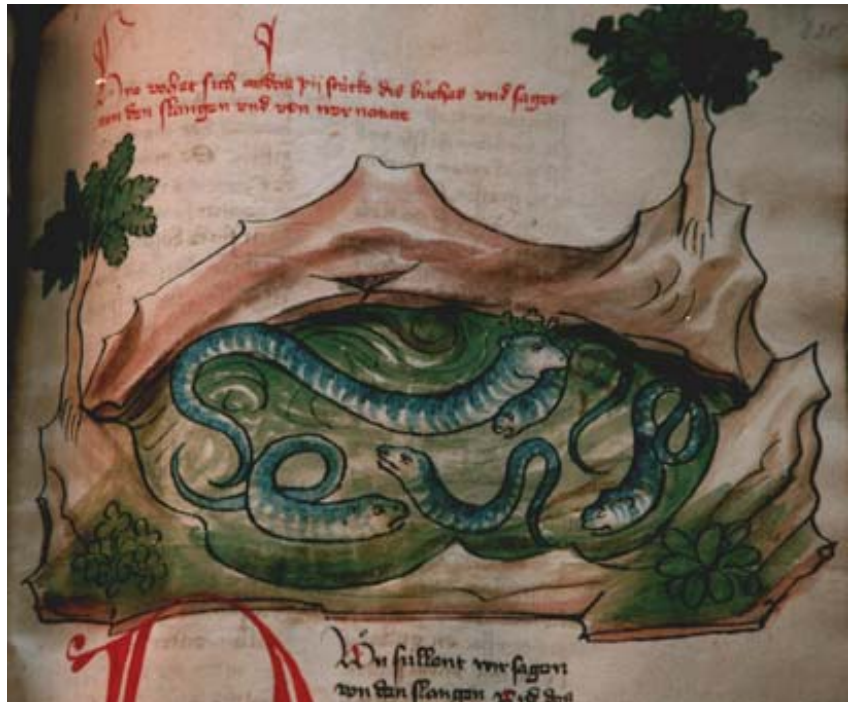 vohet sich das stücke des büches vnd saget
von den slangen vnd von nature
Nu süllent wir sagen
von den slangen vnd des